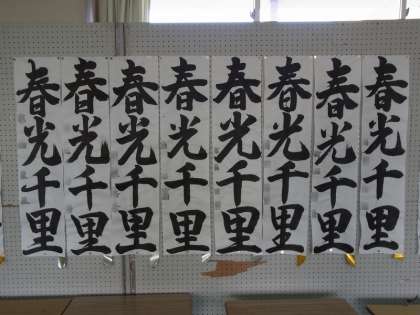 春光千里
春光千里
春光千里
春光千里
春光千里
春光千里
春光千里
春光千里